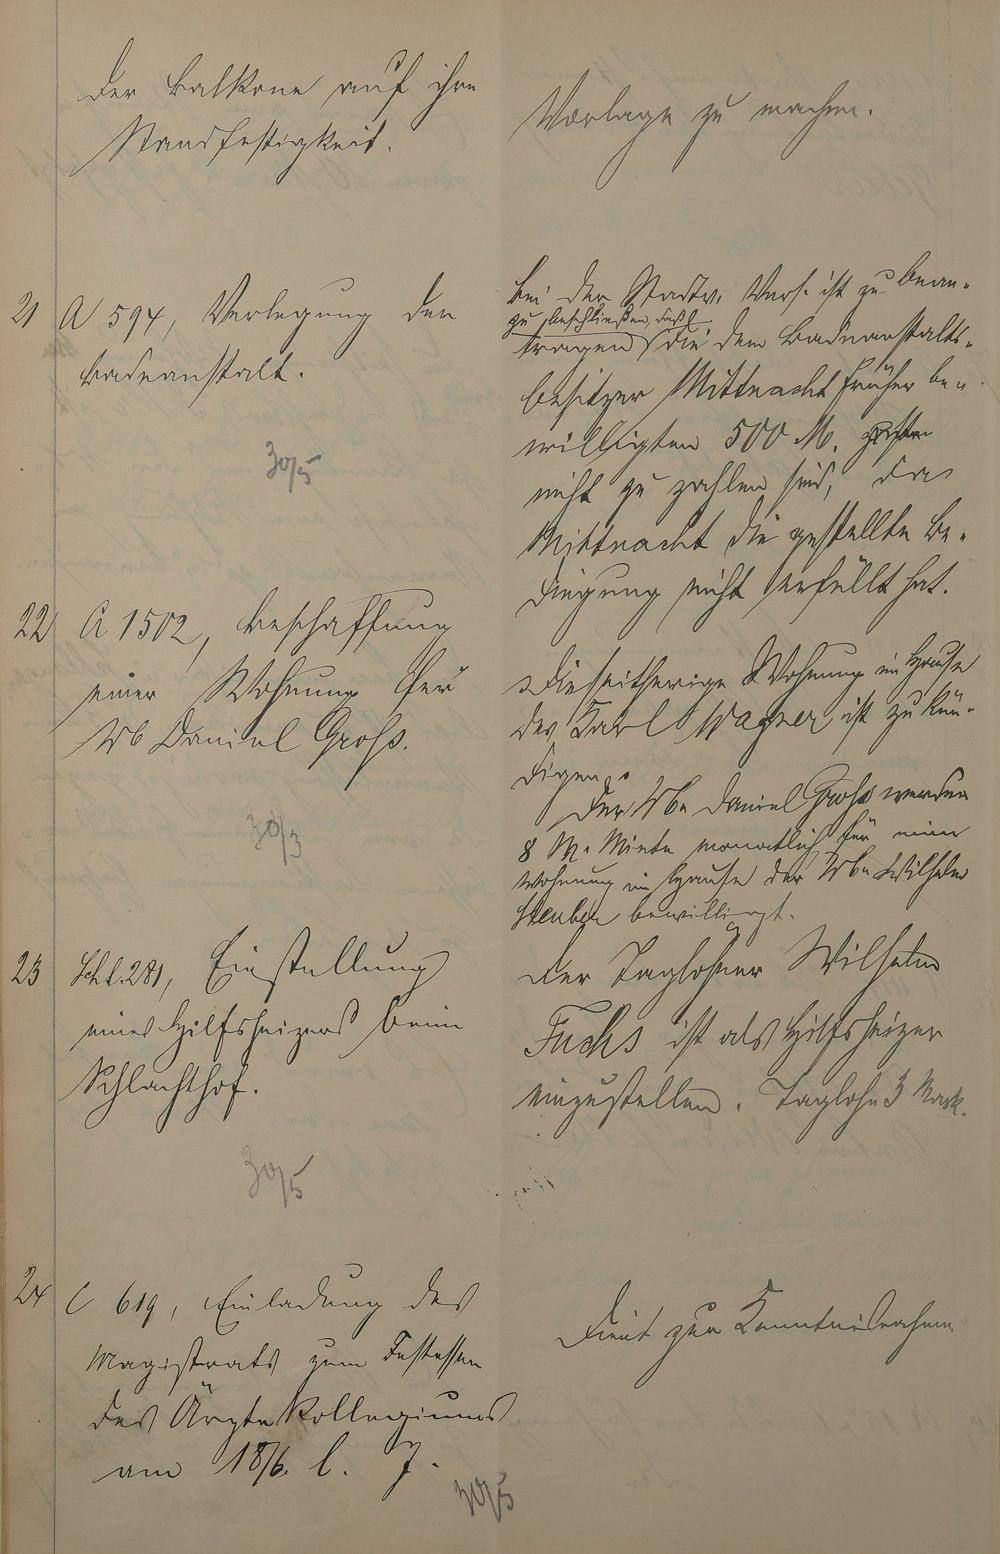 der Balkone auf ihre
Standfestigkeit.
Vorlage zu machen.
21 A 594, Verlegung der
Badeanstalt.
30/5
Bei der Stadtv. Vers. ist zu bean-
zu beschließen, daß
tragen die dem Badeanstalts-
besitzer Mittnacht früher be-
willigten 500 M.
nicht zu zahlen sind, da
Mittnacht die gestellte Be-
dingung nicht erfüllt hat.
22 A 1502, Beschaffung
einer Wohnung für
Wb Daniel Groß.
30/5
Die seitherige Wohnung im Hause
des Karl Wagner ist zu kün-
digen.
Der Wb. Daniel Groß werden
8 M. Miete monatlich für eine
Wohnung im Hause der Wb. Wilhelm
bewilligt.
23 Schl. 281, Einstellung
eines Hilfsheizers beim
Schlachthof.
30/5
Der Taglöhner Wilhelm
Fuchs ist als Hilfsheizer
einzustellen. Taglohn 3 Mark.
24 C 619, Einladung des
Magistrats zum Festessen
des Ärzte Kollegiums
am 18/6. l. J.
30/5
Dient zur Kenntnisnahme